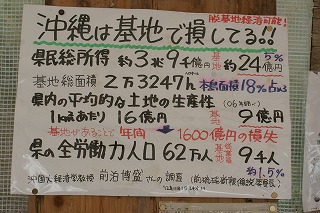 脱基地経済可能!
沖縄は基地で損してる!!
県民総所得 約3兆94億円 基地 約24億円 5%
基地総面積 2万3247h 本島面積18%占める
県内の平均的な土地の生産性
1k㎡あたり 16億円 基地 9億円
基地があることで 年間 1600億円の損失
県の全労働力人口 62万人 94人
約1.5%
沖国大経済学教授 前泊博盛さんの調査